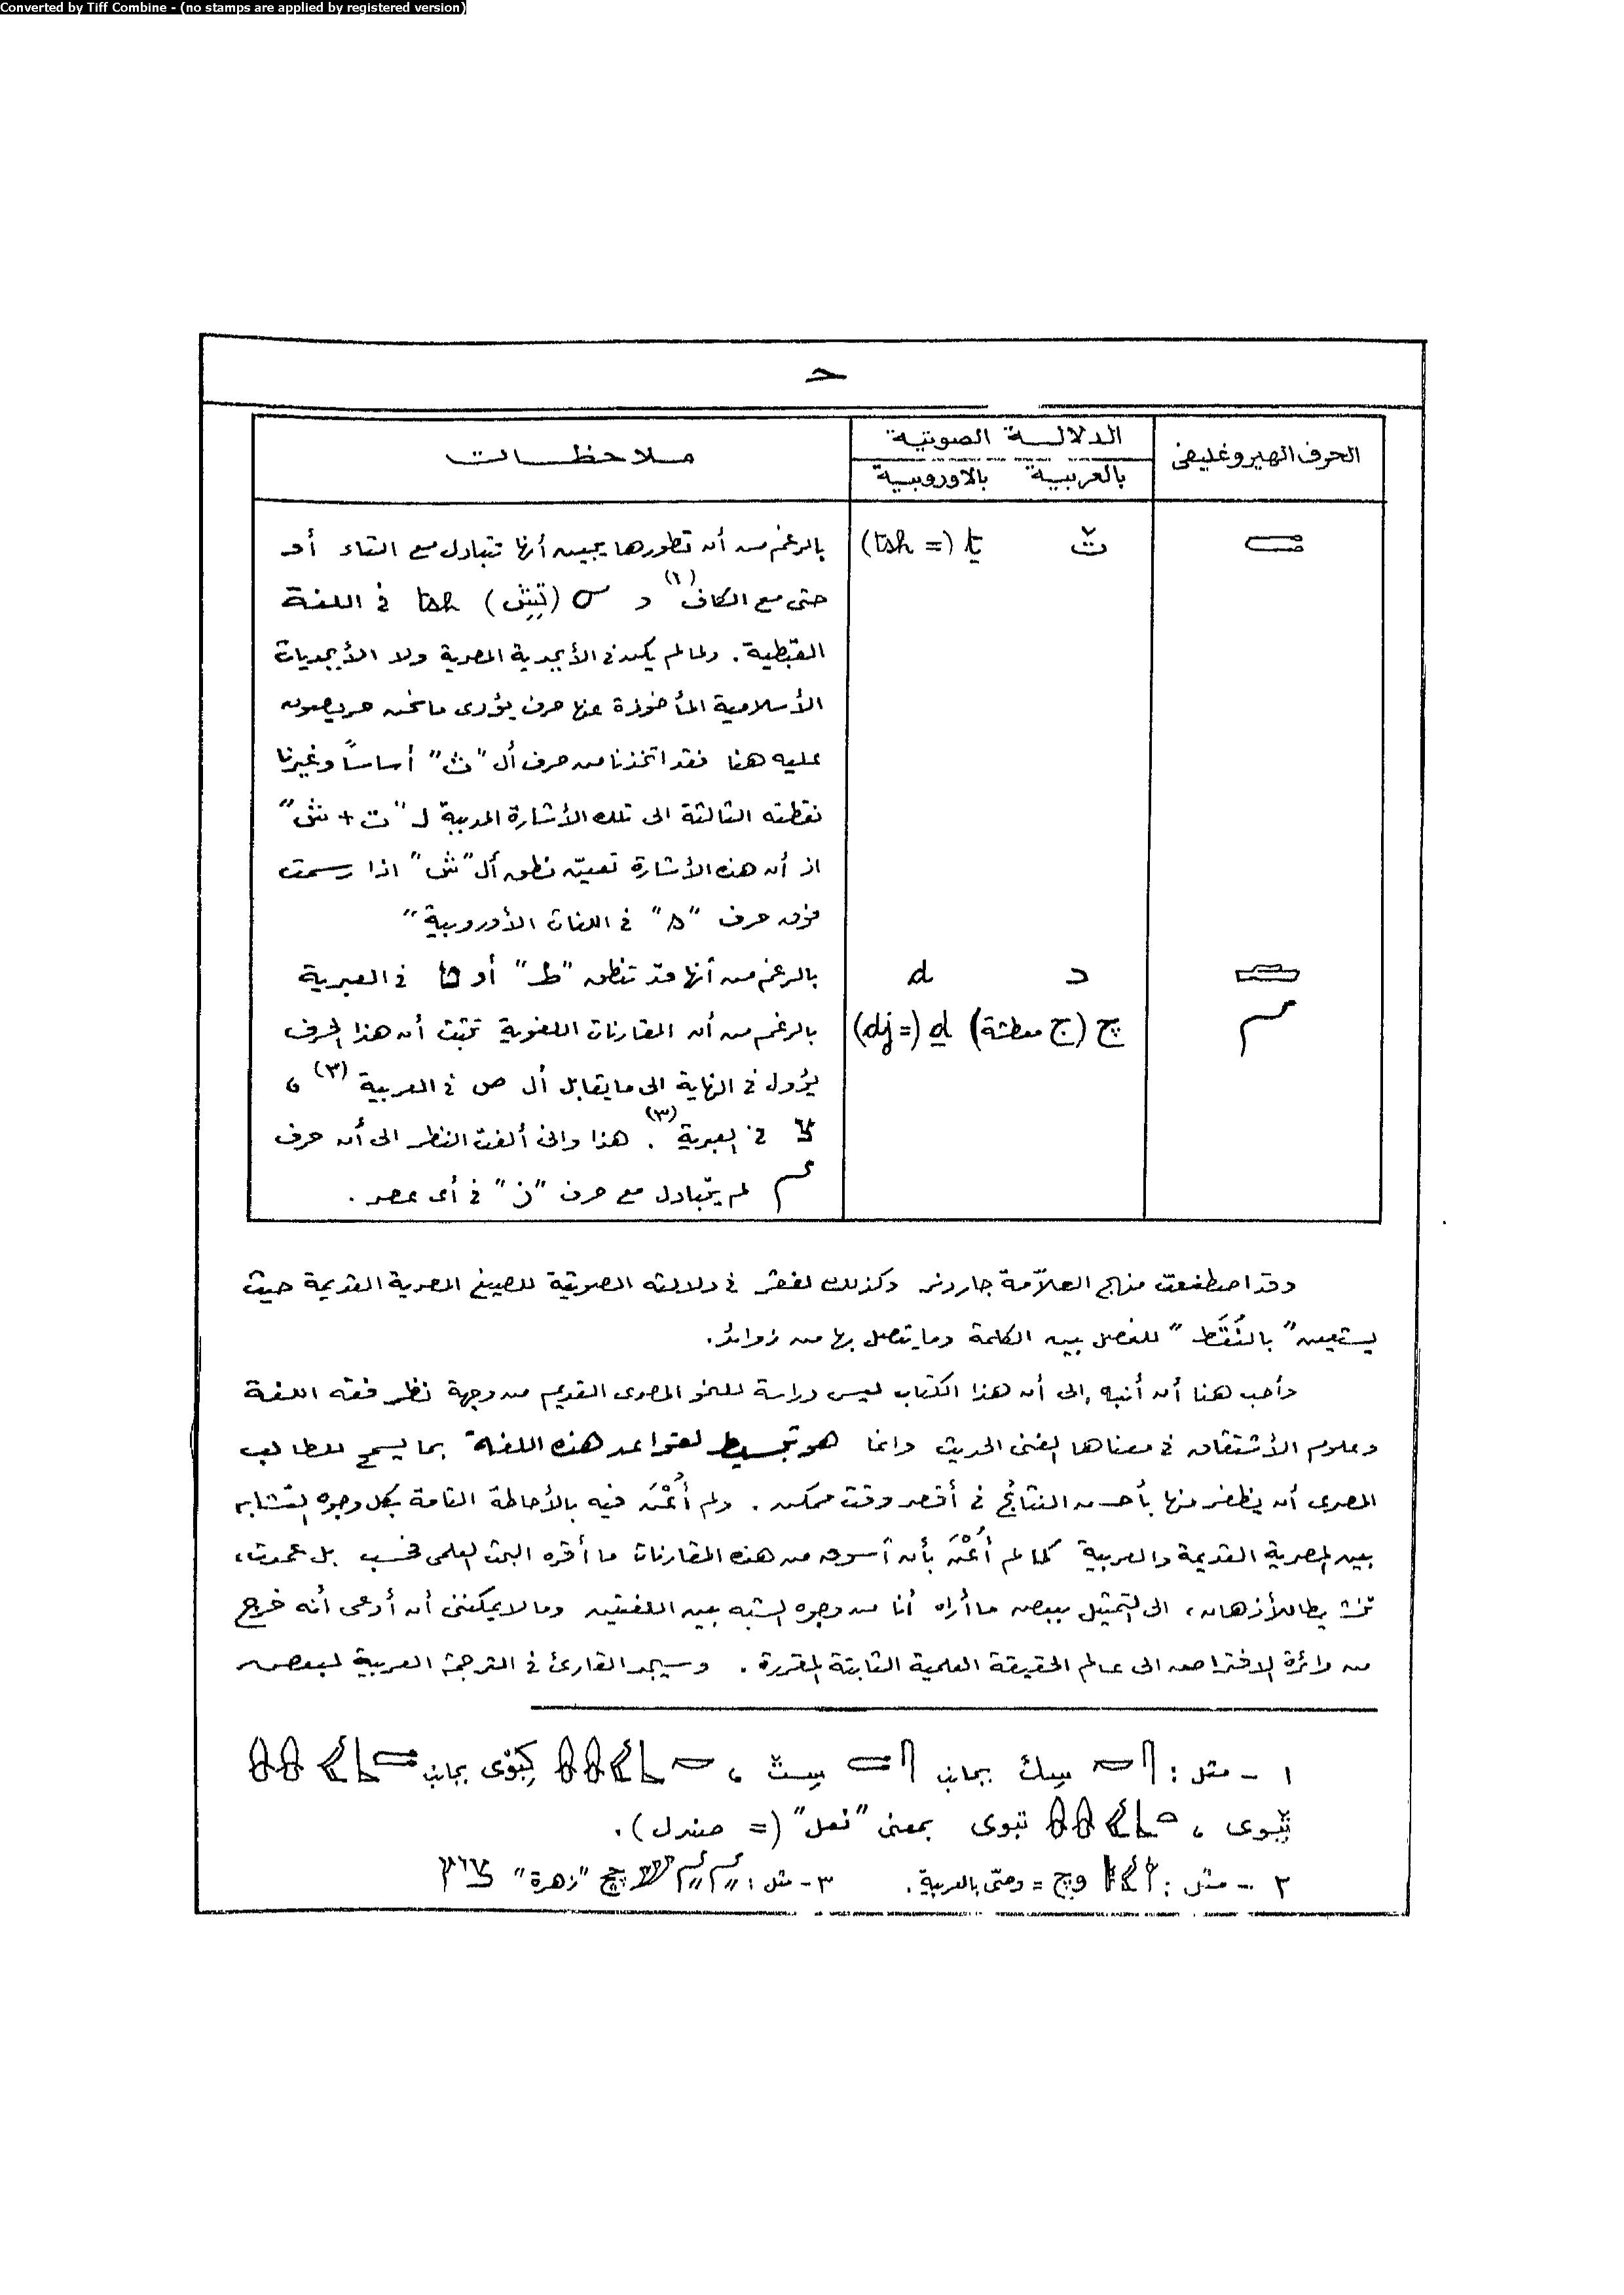 Converted by Tiff Combine - (no stamps are applied by registered version)
ح
الحرف الهيروغليفى الدلالة الصوتية ملاحظات
بالعربية بالاوروبية
ṯ (= tsh) بالرغم من أن تطورها يبين أنها تتبادل مع التاء أو
حتى مع الكاف (١) و (تِشِ) tsh فى اللغة
القبطية . ولما لم يكن فى الأبجدية المصرية ولا الأبجديات
الأسلامية المأخوذة عنها حرف يؤدى ما نحن حريصون
عليه هنا فقد اتخذنا من حرف أل "ث" أساساً وغيرنا
نقطته الثالثة الى تلك الأشارة المدببة لـ "ت + ش"
اذ أن هذه الأشارة تعين نطق أل "ش" اذا رسمت
فوق حرف "s" فى اللغات الأوروبية "
د d بالرغم من أنها قد تنطق "ط" أو ט فى العبرية
چ (ج معطشة) ḏ (= dj) بالرغم من أن المقارنات اللغوية تثبت أن هذا الحرف
يؤول فى النهاية الى ما يقابل أل ص فى العربية (٣) ،
צ فى العبرية (٣) . هذا وانى ألفت النظر الى أن حرف
لم يتبادل مع حرف "ز" فى أى عصر .
وقد اصطنعت منهج العلاّمة جاردنر وكذلك لفقر فى دلالته الصوتية للصيغ المصرية القديمة حيث
يستعين "بالنُقَط" للفصل بين الكلمة وما يتصل بها من زوائد .
وأحب هنا أن أنبه إلى أن هذا الكتاب ليس دراسة للنحو المصرى القديم من وجهة نظر فقه اللغة
وعلوم الأشتقاق فى معناها الفنى الحديث وانما هو تبسيط لقواعد هذه اللغة بما يسمح للطالب
المصرى أن يظفر منها بأحسن النتائج فى أقصر وقت ممكن . ولم أُعْنَ فيه بالأحاطة التامة بكل وجوه التشابه
بين المصرية القديمة والعربية كما لم أُعْنَ بأن أسوق من هذه المقارنات ما أقره البحث العلمى فحسب بل عمدت ،
تنشيطا للأذهان ، الى التمثيل ببعض ما أراه أنا من وجوه الشبه بين اللغتين وما لا يمكننى أن أدعى أنه خرج
من دائرة الافتراض الى عالم الحقيقة العلمية الثابتة المقررة . وسيجد القارئ فى الترجمة العربية لبعض
١ - مثل : سِك بجانب ، بجانب
، تبوى بمعنى "نعل" (= صندل) .
٢ - مثل : وچ = وصّى بالعربية . ٣ - مثل : "زهرة"